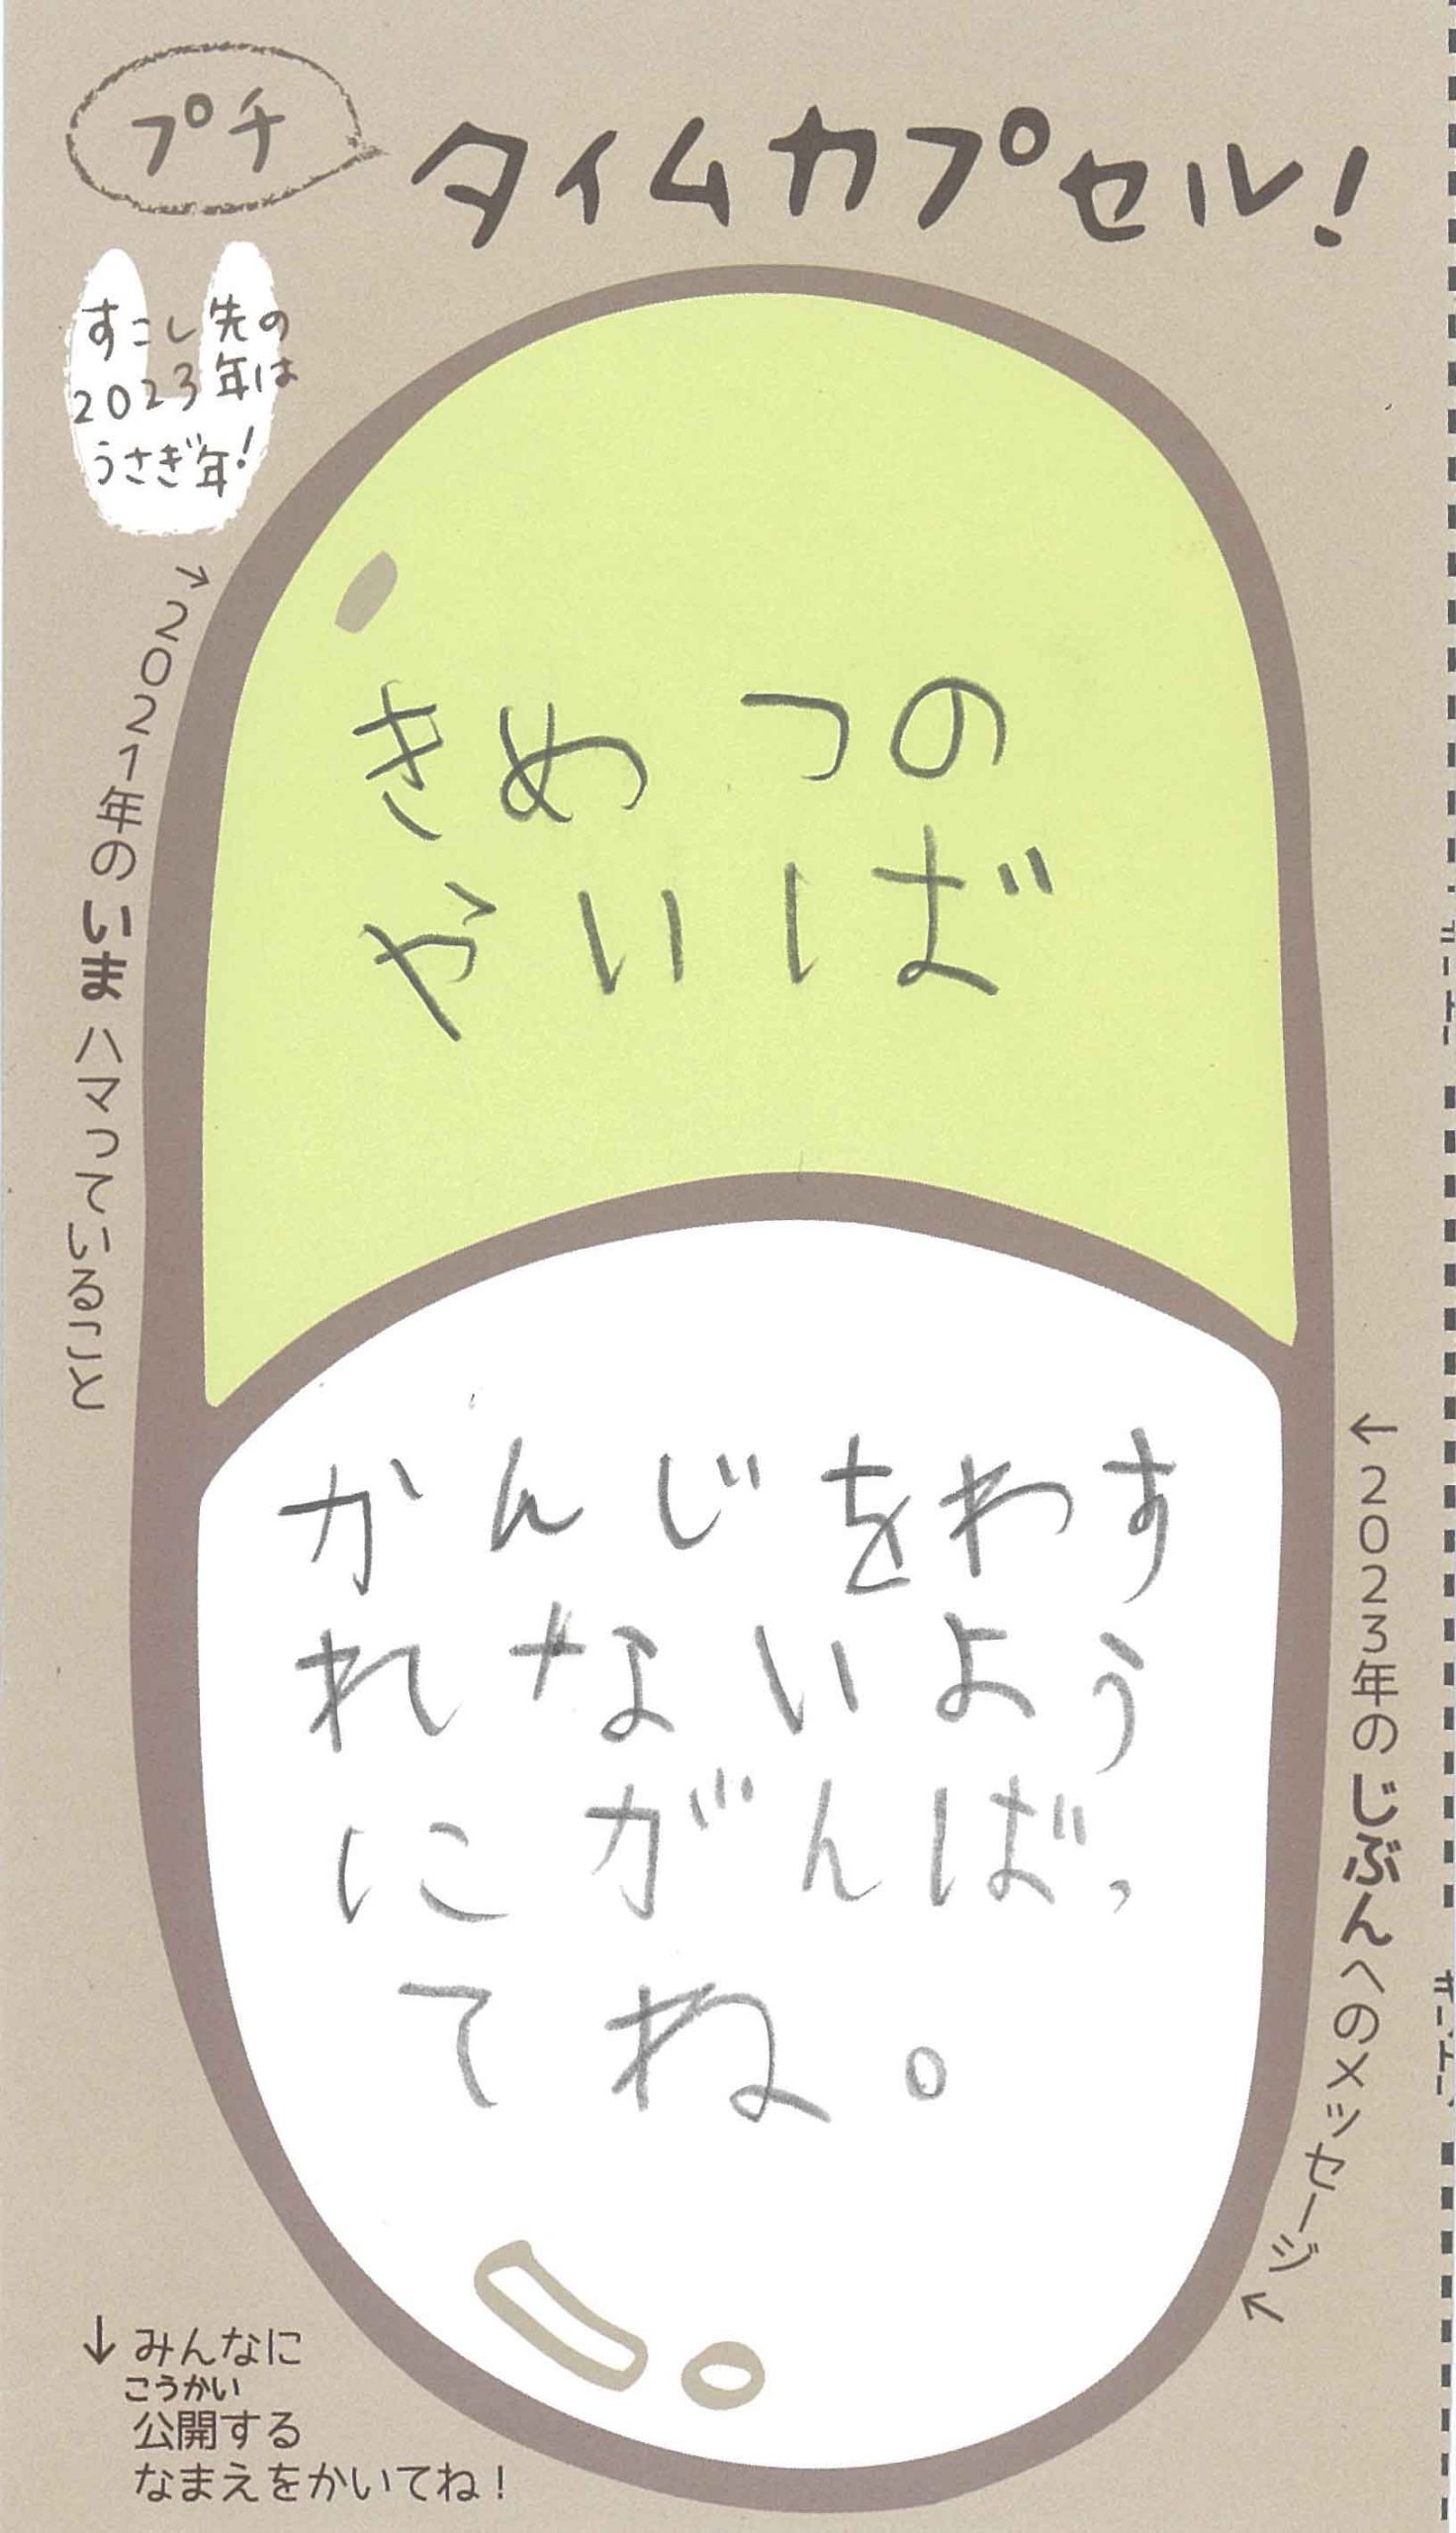 プチ
タイムカプセル!
すこし先の
2023年は
うさぎ年!
→2021年のいまハマっていること
きめつの
やいば
←2023年のじぶんへのメッセージ
かんじをわす
れないよう
にがんばっ
てね。
↓みんなに
こうかい
公開する
なまえをかいてね!